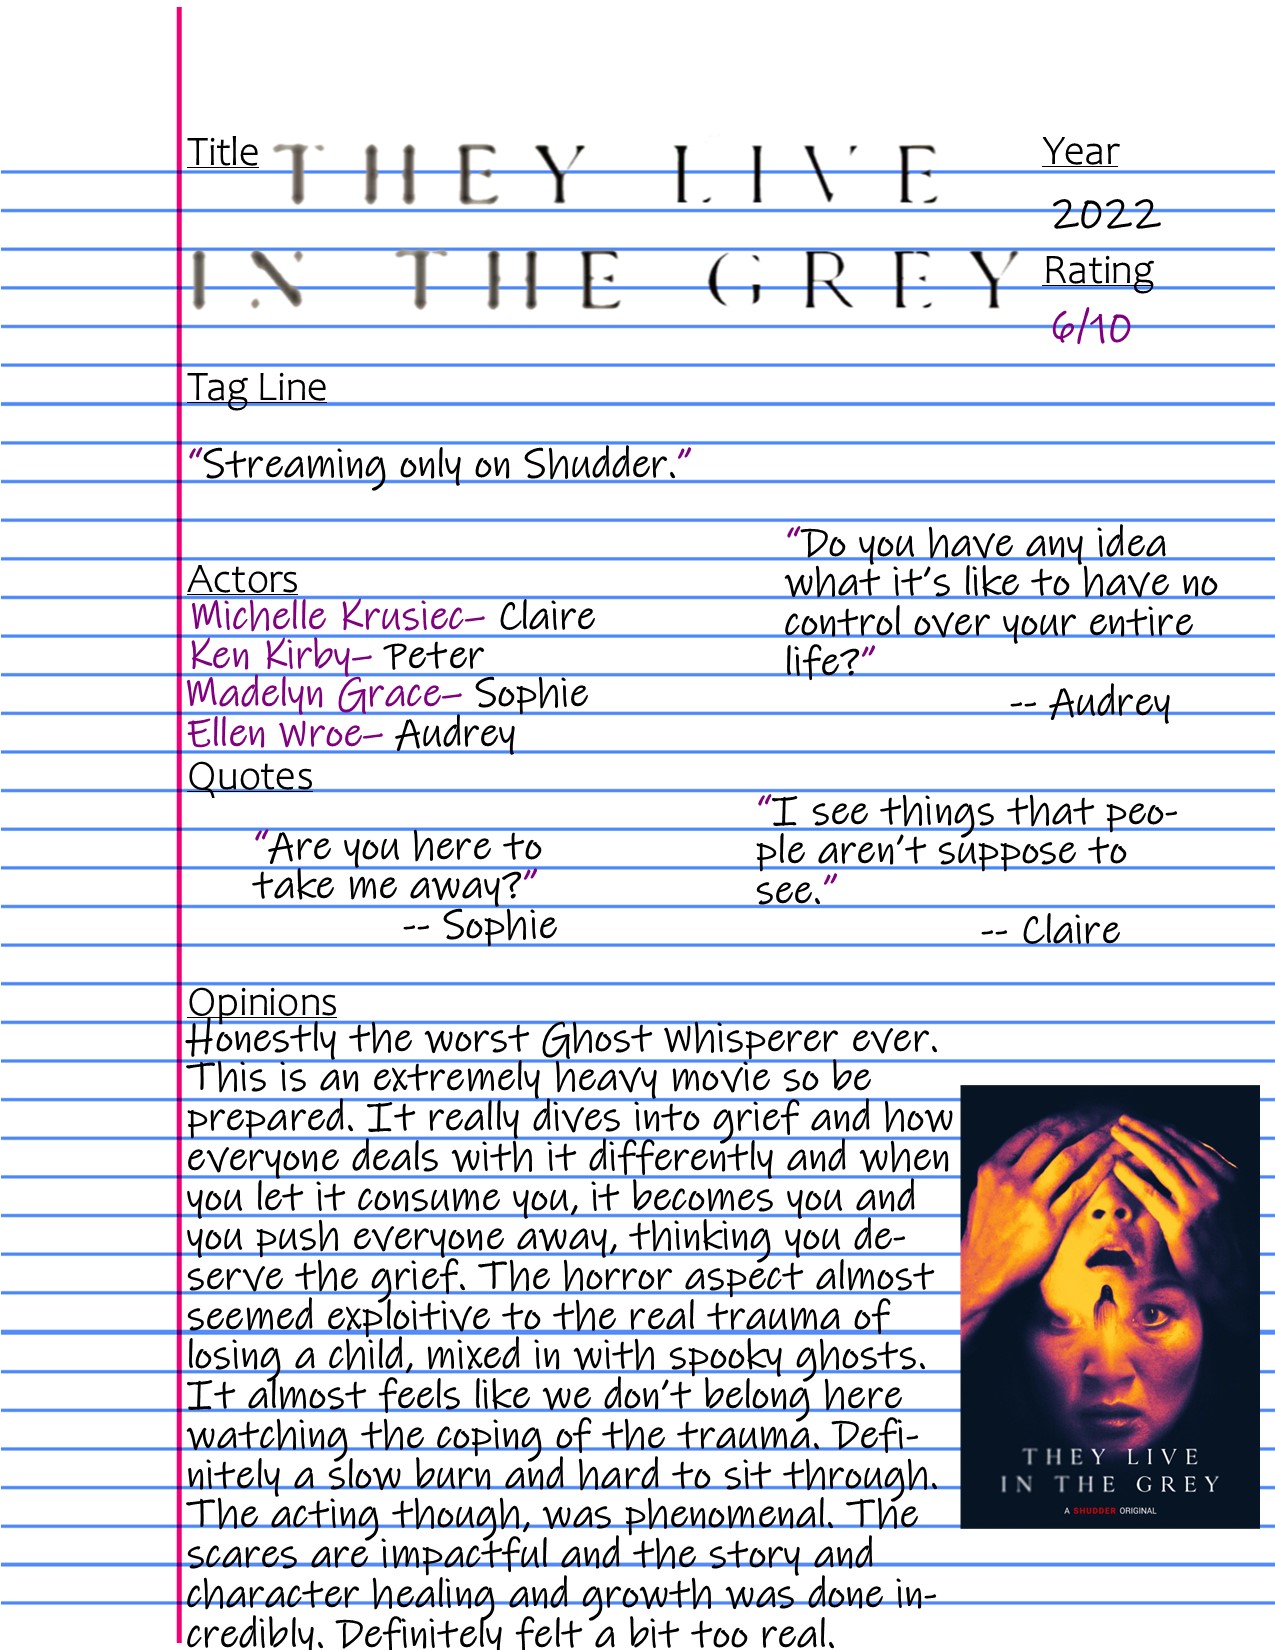 Title THEY LIVE
IN THE GREY
Year
2022
Rating
6/10
Tag Line
"Streaming only on Shudder."
Actors
Michelle Krusiec– Claire
Ken Kirby– Peter
Madelyn Grace– Sophie
Ellen Wroe– Audrey
"Do you have any idea
what it's like to have no
control over your entire
life?"
-- Audrey
Quotes
"Are you here to
take me away?"
-- Sophie
"I see things that peo-
ple aren't suppose to
see."
-- Claire
Opinions
Honestly the worst Ghost Whisperer ever.
This is an extremely heavy movie so be
prepared. It really dives into grief and how
everyone deals with it differently and when
you let it consume you, it becomes you and
you push everyone away, thinking you de-
serve the grief. The horror aspect almost
seemed exploitive to the real trauma of
losing a child, mixed in with spooky ghosts.
It almost feels like we don't belong here
watching the coping of the trauma. Defi-
nitely a slow burn and hard to sit through.
The acting though, was phenomenal. The
scares are impactful and the story and
character healing and growth was done in-
credibly. Definitely felt a bit too real.
THEY LIVE
IN THE GREY
A SHUDDER ORIGINAL